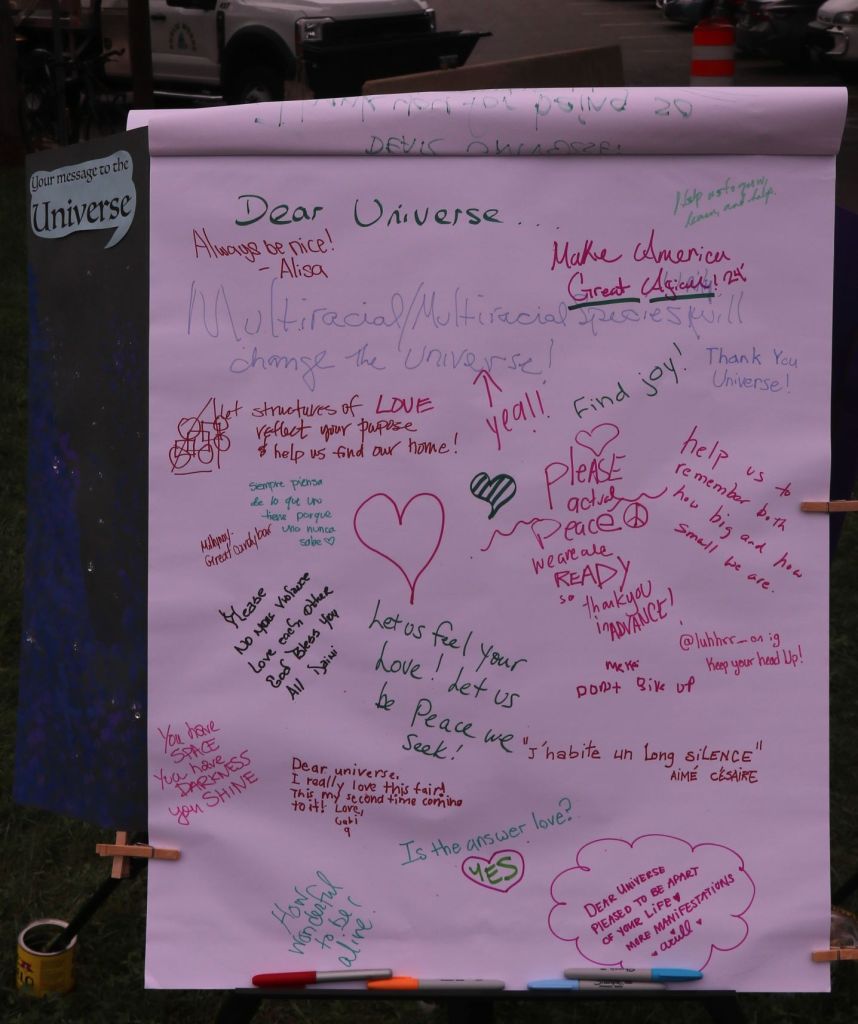 Your message to the
Universe
Dear Universe...
Help us to grow,
learn, and help.
Always be nice!
- Alisa
Make America
Great Again! 24'
Multiracial/Multiracial species will
change the universe!
Thank You
Universe!
Find joy!
yeah!!
let structures of LOVE
reflect your purpose
& help us find our home!
PLEASE
actual
Peace
we are all
READY
so thank you
in ADVANCE!
help us to
remember both
how big and how
small we are.
sempre piensa
de lo que uno
tiene porque
uno nunca
sabe ♡
Great candybar
Please
No More Violence
Love each other
God Bless You
All
Let us feel your
Love! Let us
be Peace we
seek!
@luhhrr_on ig
Keep your head Up!
DON't Give up
You have
SPACE
You have
DARKNESS
you SHINE
"J'habite un Long SiLENCE"
AIMÉ CÉSAIRE
Dear universe.
I really love this fair!
This my second time coming
to it! Love,
9
Is the answer love?
YES
How
wonderful
to be
alive!
DEAR UNIVERSE
PLEASED TO BE APART
OF YOUR LIFE ♥
MORE MANIFESTATIONS